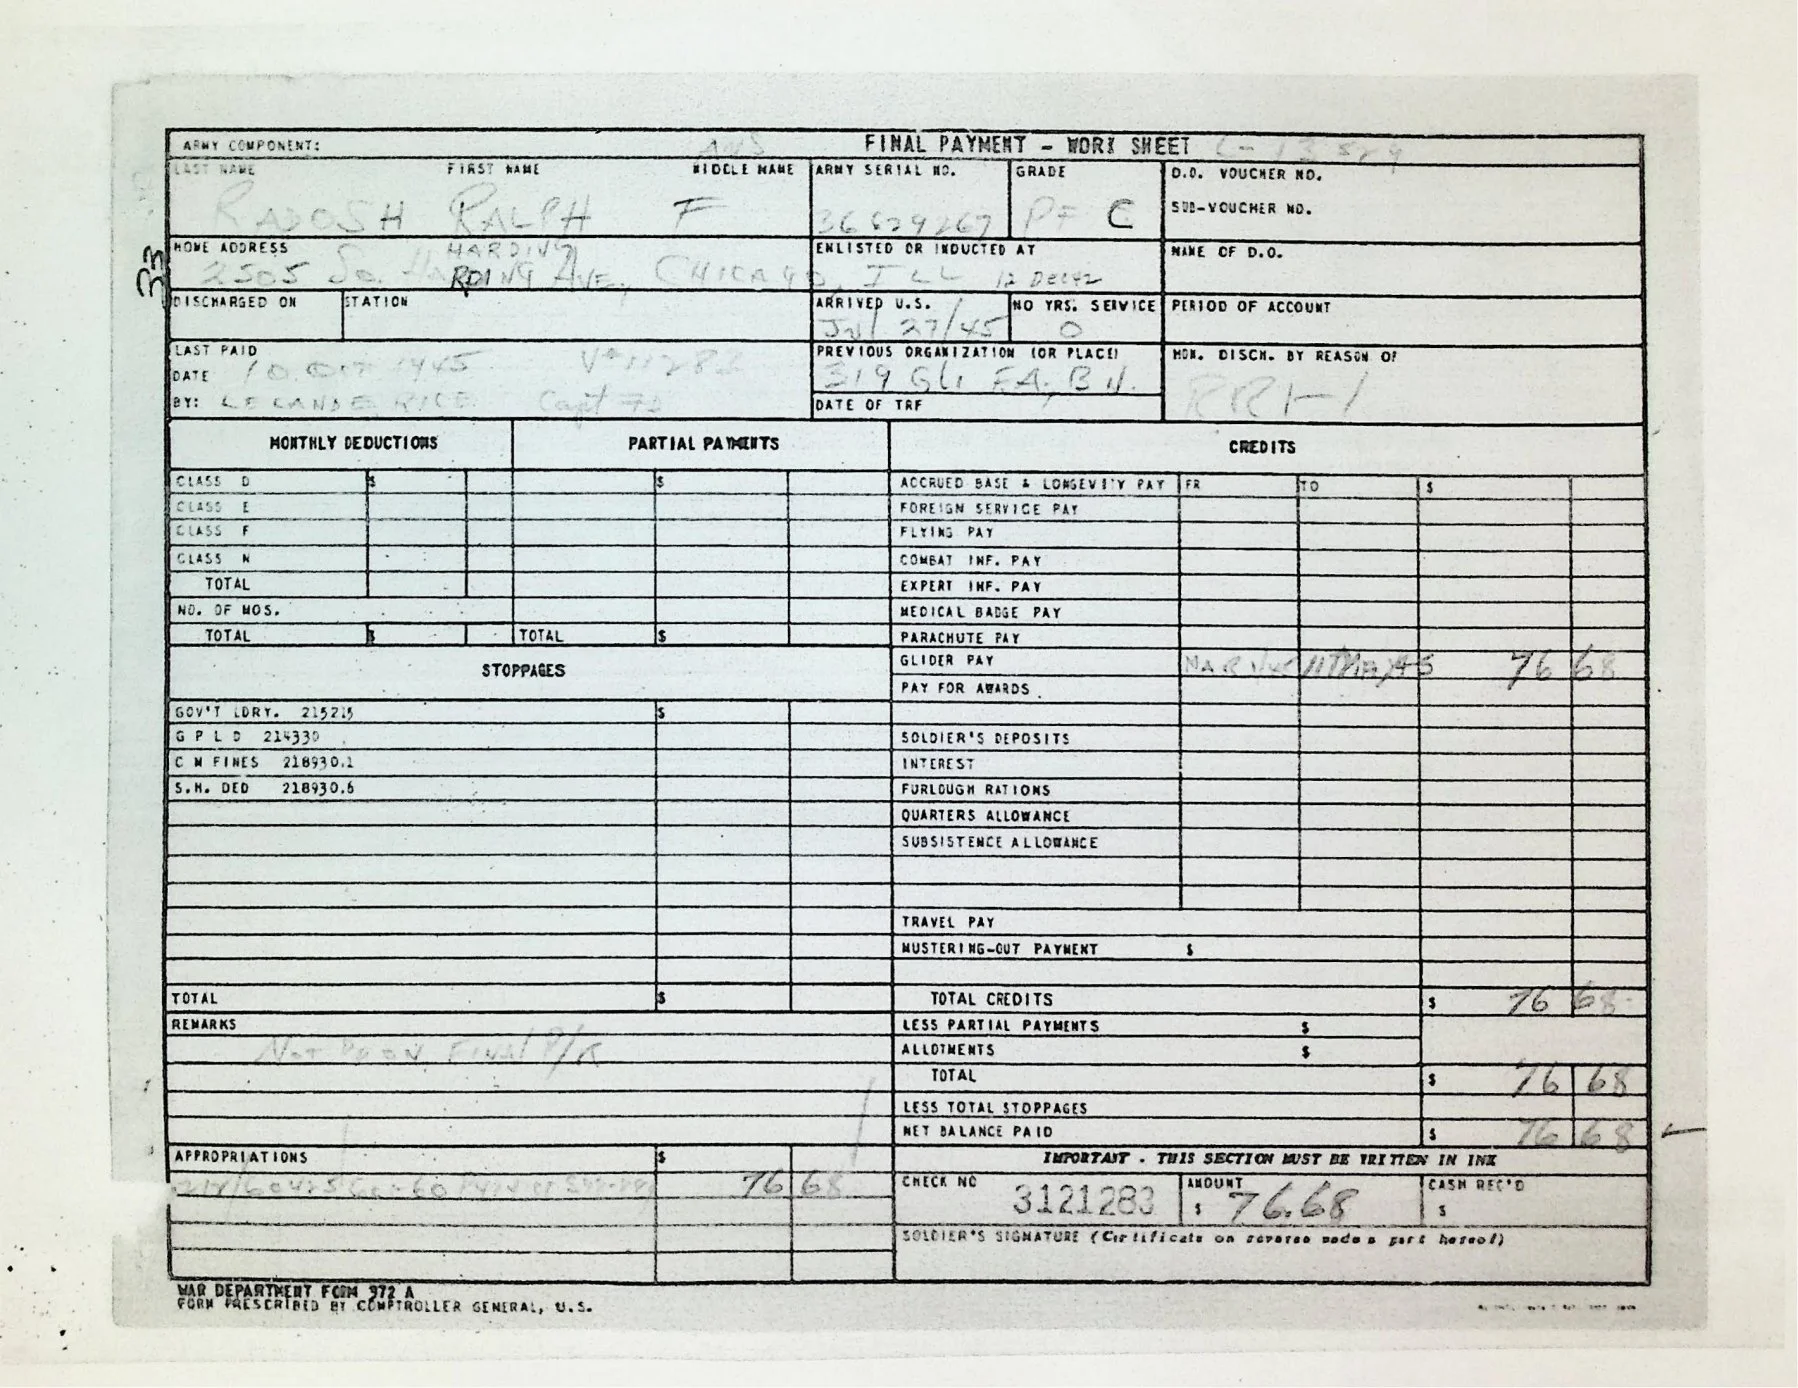 ARMY COMPONENT: AUS FINAL PAYMENT - WORK SHEET
LAST NAME FIRST NAME MIDDLE NAME ARMY SERIAL NO. GRADE D.O. VOUCHER NO.
RADOSH RALPH F PFC SUB-VOUCHER NO.
33
HOME ADDRESS HARDING ENLISTED OR INDUCTED AT NAME OF D.O.
2505 So. HARDING AVE, CHICAGO, ILL 12 DEC 42
DISCHARGED ON STATION ARRIVED U.S. NO YRS. SERVICE PERIOD OF ACCOUNT
27/45 0
LAST PAID PREVIOUS ORGANIZATION (OR PLACE) HON. DISCH. BY REASON OF
DATE 10 OCT 1945 319 Gli F.A. BN. RR1-1
BY: Capt FD DATE OF TRF
MONTHLY DEDUCTIONS PARTIAL PAYMENTS CREDITS
CLASS D $ $ ACCRUED BASE & LONGEVITY PAY FR TO $
CLASS E FOREIGN SERVICE PAY
CLASS F FLYING PAY
CLASS N COMBAT INF. PAY
TOTAL EXPERT INF. PAY
NO. OF MOS. MEDICAL BADGE PAY
TOTAL $ TOTAL $ PARACHUTE PAY
STOPPAGES GLIDER PAY 76 68
PAY FOR AWARDS
GOV'T LDRY. 215215 $
G P L D 214330 SOLDIER'S DEPOSITS
C M FINES 218930.1 INTEREST
S.H. DED 218930.6 FURLOUGH RATIONS
QUARTERS ALLOWANCE
SUBSISTENCE ALLOWANCE
TRAVEL PAY
MUSTERING-OUT PAYMENT $
TOTAL $ TOTAL CREDITS $ 76 68
REMARKS LESS PARTIAL PAYMENTS $
NOT FINAL P/R ALLOTMENTS $
TOTAL $ 76 68
LESS TOTAL STOPPAGES
NET BALANCE PAID $ 76 68
APPROPRIATIONS $ IMPORTANT - THIS SECTION MUST BE WRITTEN IN INK
76 68 CHECK NO 3121283 AMOUNT $ 76.68 CASH REC'D $
SOLDIER'S SIGNATURE (Certificate on reverse made a part hereof)
WAR DEPARTMENT FORM 372 A
FORM PRESCRIBED BY COMPTROLLER GENERAL, U.S.